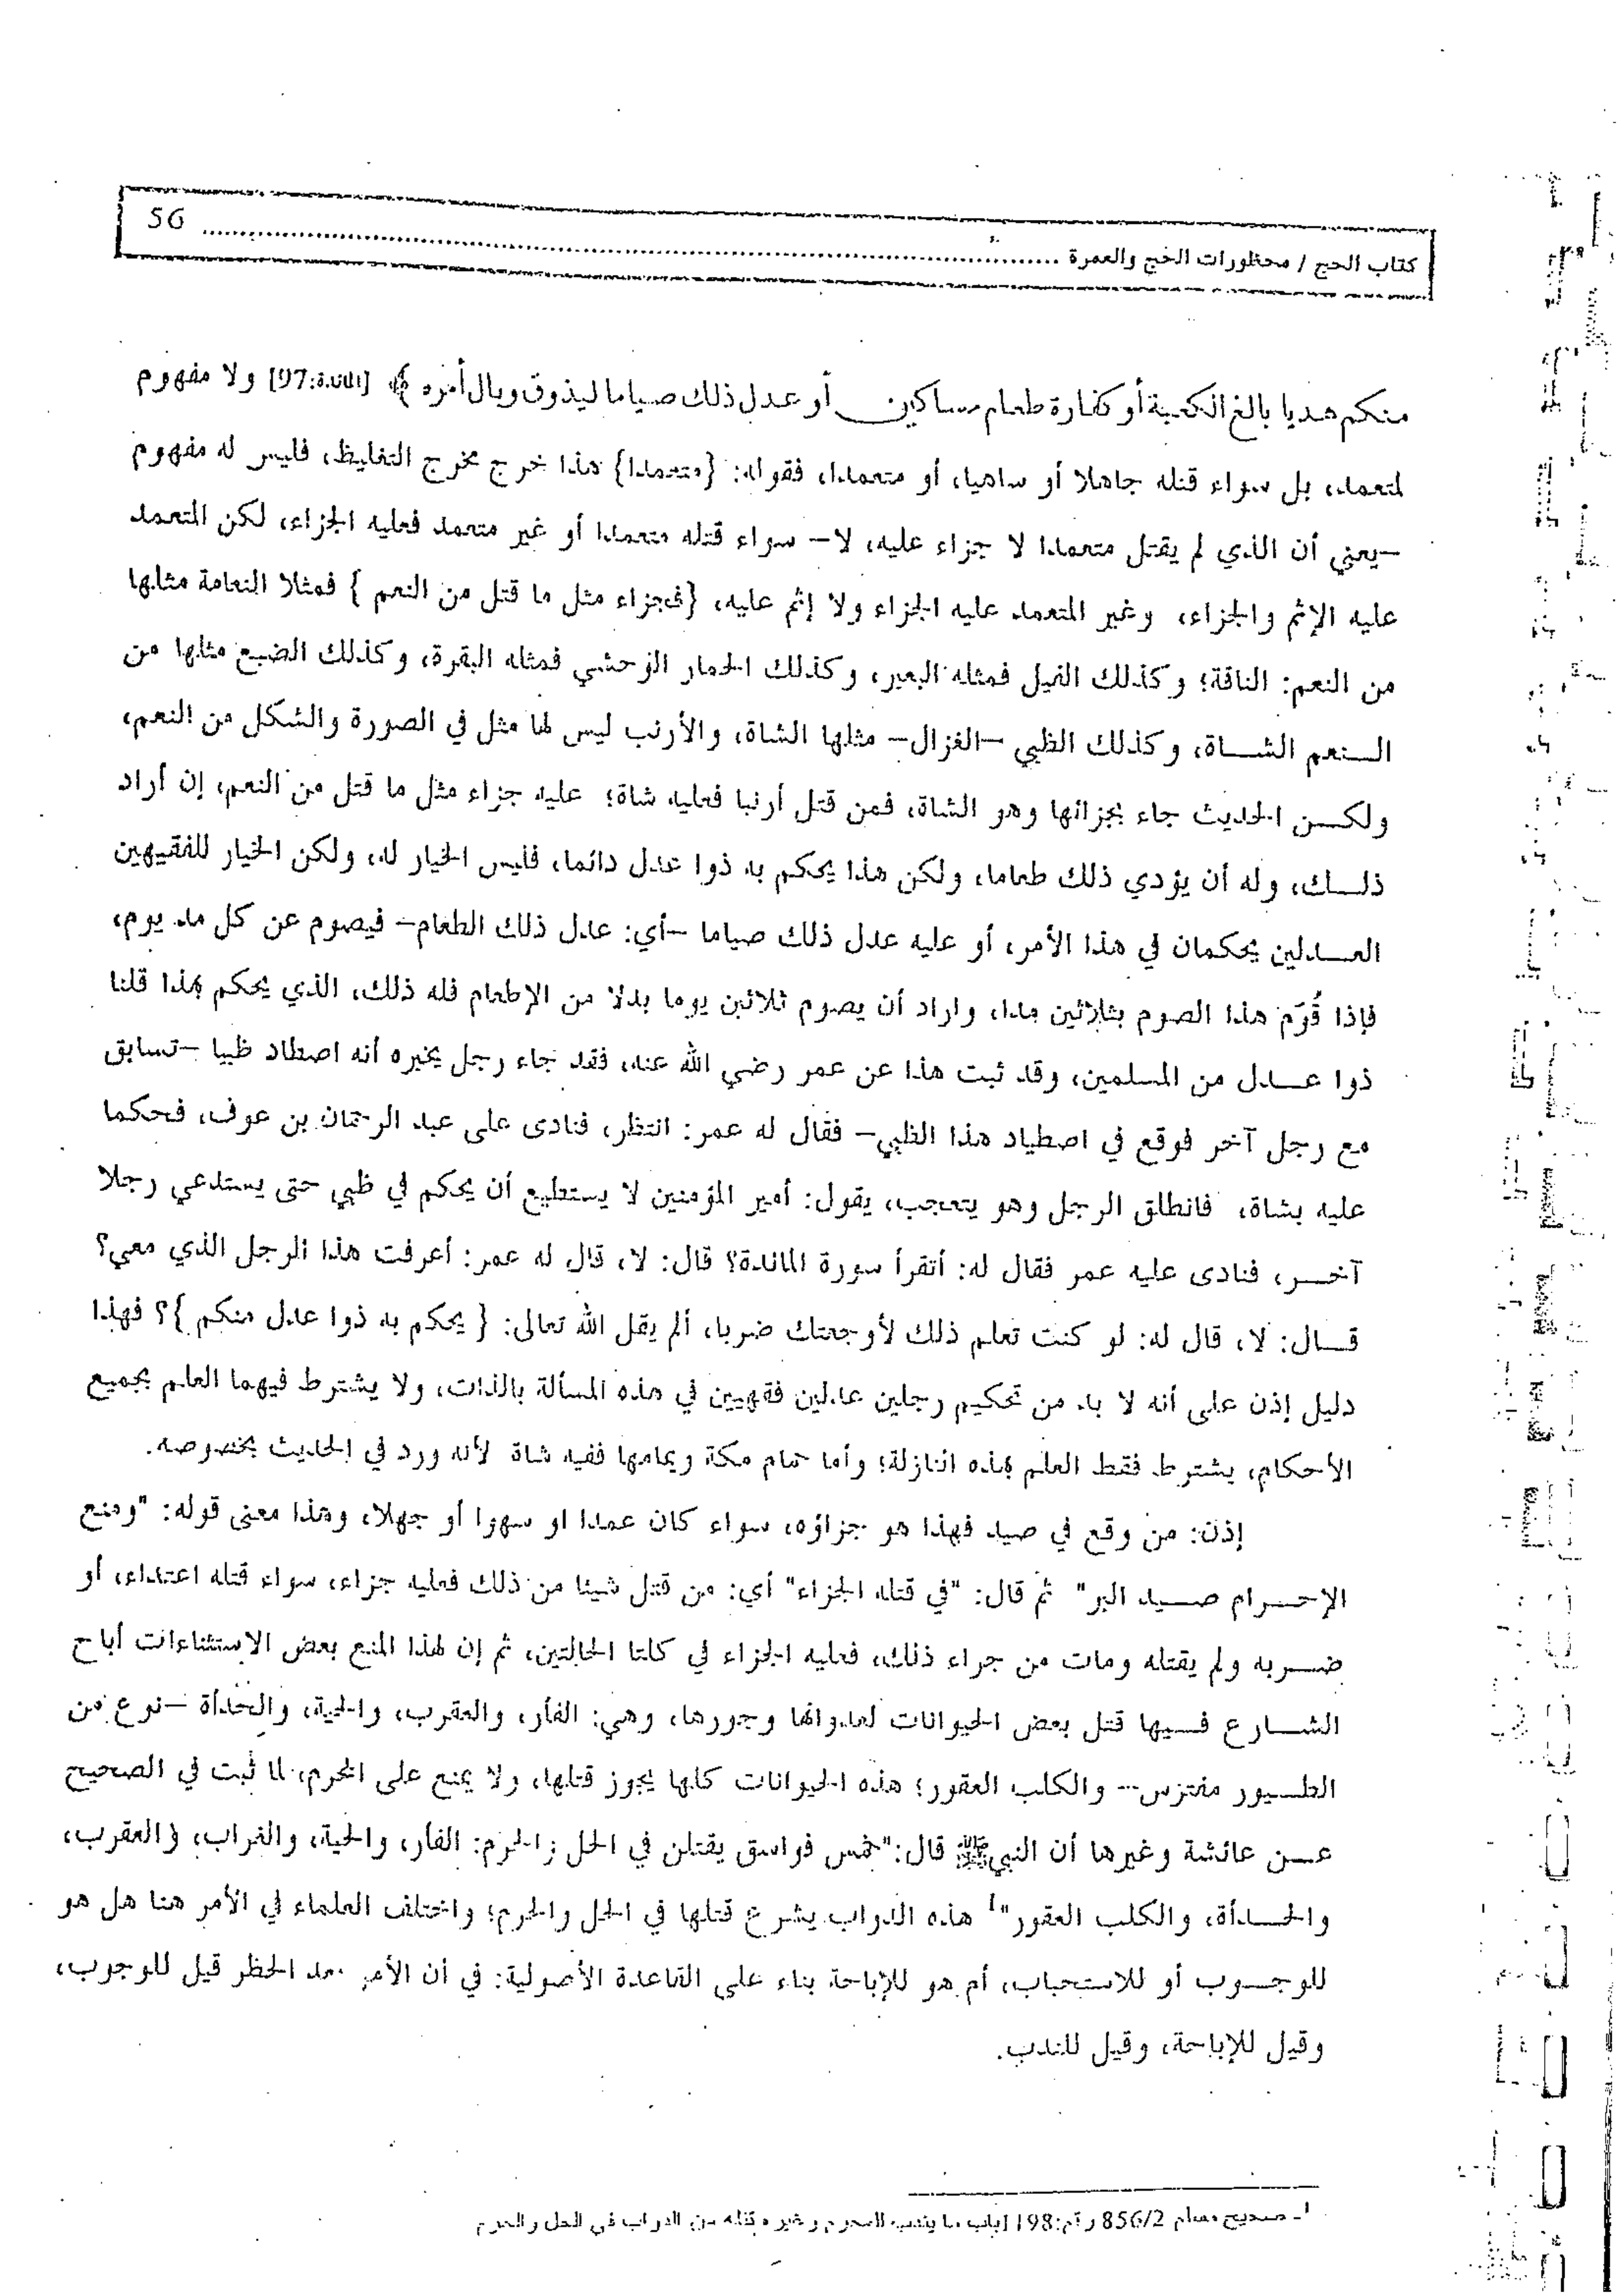 56 كتاب الحج / محظورات الحج والعمرة
منكم هديا بالغ الكعبة أو كفارة طعام مساكين أو عدل ذلك صياما ليذوق وبال أمره ﴾ [المائدة:97] ولا مفهوم
لمتعمد، بل سواء قتله جاهلا أو ساهيا، أو متعمدا، فقوله: {متعمدا} هذا خرج مخرج التغليظ، فليس له مفهوم
–يعني أن الذي لم يقتل متعمدا لا جزاء عليه، لا– سواء قتله متعمدا أو غير متعمد فعليه الجزاء، لكن المتعمد
عليه الإثم والجزاء، وغير المتعمد عليه الجزاء ولا إثم عليه، {فجزاء مثل ما قتل من النعم } فمثلا النعامة مثلها
من النعم: الناقة؛ وكذلك الفيل فمثله البعير، وكذلك الحمار الوحشي فمثله البقرة، وكذلك الضبع مثلها من
النعم الشاة، وكذلك الظبي –الغزال– مثلها الشاة، والأرنب ليس لها مثل في الصورة والشكل من النعم،
ولكن الحديث جاء بجزائها وهو الشاة، فمن قتل أرنبا فعليه شاة؛ عليه جزاء مثل ما قتل من النعم، إن أراد
ذلك، وله أن يؤدي ذلك طعاما، ولكن هذا يحكم به ذوا عدل دائما، فليس الخيار له، ولكن الخيار للفقيهين
العدلين يحكمان في هذا الأمر، أو عليه عدل ذلك صياما –أي: عدل ذلك الطعام– فيصوم عن كل مد يوم،
فإذا قُوّم هذا الصوم بثلاثين مدا، واراد أن يصوم ثلاثين يوما بدلا من الإطعام فله ذلك، الذي يحكم بهذا قلنا
ذوا عدل من المسلمين، وقد ثبت هذا عن عمر رضي الله عنه، فقد جاء رجل يخبره أنه اصطاد ظبيا –تسابق
مع رجل آخر فوقع في اصطياد هذا الظبي– فقال له عمر: انتظر، فنادى على عبد الرحمان بن عوف، فحكما
عليه بشاة، فانطلق الرجل وهو يتعجب، يقول: أمير المؤمنين لا يستطيع أن يحكم في ظبي حتى يستدعي رجلا
آخر، فنادى عليه عمر فقال له: أتقرأ سورة المائدة؟ قال: لا، قال له عمر: أعرفت هذا الرجل الذي معي؟
قال: لا، قال له: لو كنت تعلم ذلك لأوجعتك ضربا، ألم يقل الله تعالى: { يحكم به ذوا عدل منكم }؟ فهذا
دليل إذن على أنه لا بد من تحكيم رجلين عدلين فقهيين في هذه المسألة بالذات، ولا يشترط فيهما العلم بجميع
الأحكام، يشترط فقط العلم بهذه النازلة؛ وأما حمام مكة ويمامها ففيه شاة لأنه ورد في الحديث بخصوصه.
إذن: من وقع في صيد فهذا هو جزاؤه، سواء كان عمدا او سهوا أو جهلا، وهذا معنى قوله: "ومنع
الإحرام صيد البر" ثم قال: "في قتله الجزاء" أي: من قتل شيئا من ذلك فعليه جزاء، سواء قتله اعتداء، أو
ضربه ولم يقتله ومات من جراء ذلك، فعليه الجزاء في كلتا الحالتين، ثم إن لهذا المنع بعض الاستثناءات أباح
الشارع فيها قتل بعض الحيوانات لعدوانها وجورها، وهي: الفأر، والعقرب، والحية، والحدأة –نوع من
الطيور مفترس– والكلب العقور؛ هذه الحيوانات كلها يجوز قتلها، ولا يمنع على المحرم، لما ثبت في الصحيح
عن عائشة وغيرها أن النبي ﷺ قال: "خمس فواسق يقتلن في الحل والحرم: الفأر، والحية، والغراب، والعقرب،
والحدأة، والكلب العقور"1 هذه الدواب يشرع قتلها في الحل والحرم؛ واختلف العلماء في الأمر هنا هل هو
للوجوب أو للاستحباب، أم هو للإباحة بناء على القاعدة الأصولية: في أن الأمر بعد الحظر قيل للوجوب،
وقيل للإباحة، وقيل للندب.
1- صحيح مسلم 856/2 رقم:1198 باب ما يندب للمحرم وغيره قتله من الدواب في الحل والحرم